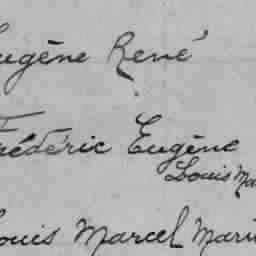 Eugène René
Frédéric Eugène
Louis Ma
Louis Marcel Mari